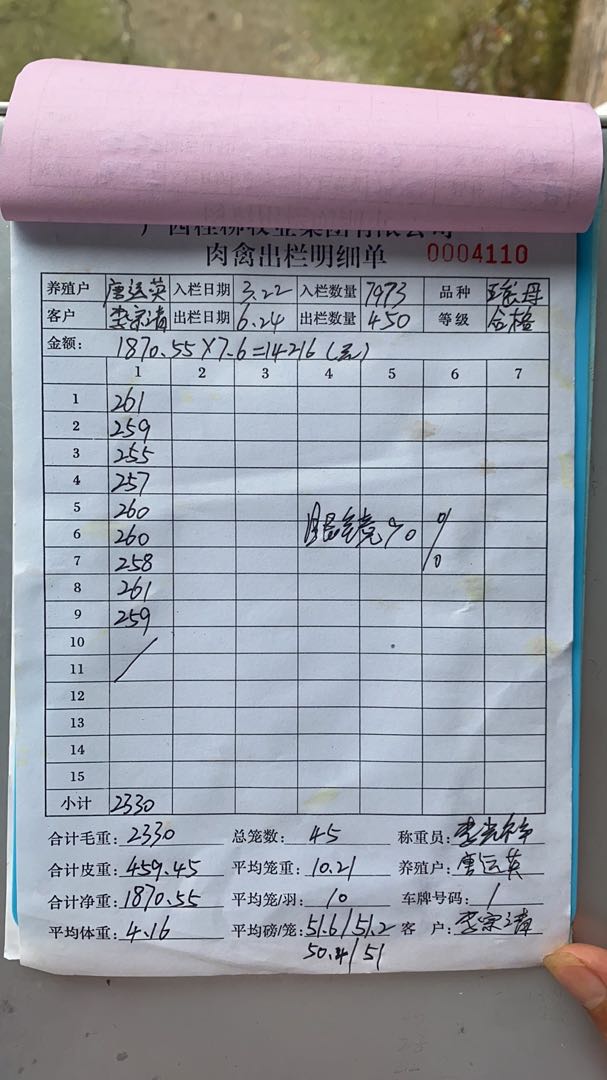 肉禽出栏明细单 0004110
养殖户 唐运英 入栏日期 3.22 入栏数量 7973 品种
客户 出栏日期 6.24 出栏数量 450 等级 合格
金额: 1870.55×7.6=14216(元)
1 2 3 4 5 6 7
1 261
2 259
3 255
4 257
5 260
6 260 90%
7 258
8 261
9 259
10
11
12
13
14
15
小计 2330
合计毛重: 2330 总笼数: 45 称重员:
合计皮重: 459.45 平均笼重: 10.21 养殖户: 唐运英
合计净重: 1870.55 平均笼/羽: 10 车牌号码: 1
平均体重: 4.16 平均磅/笼: 51.6/51.2 客 户:
50.4/51